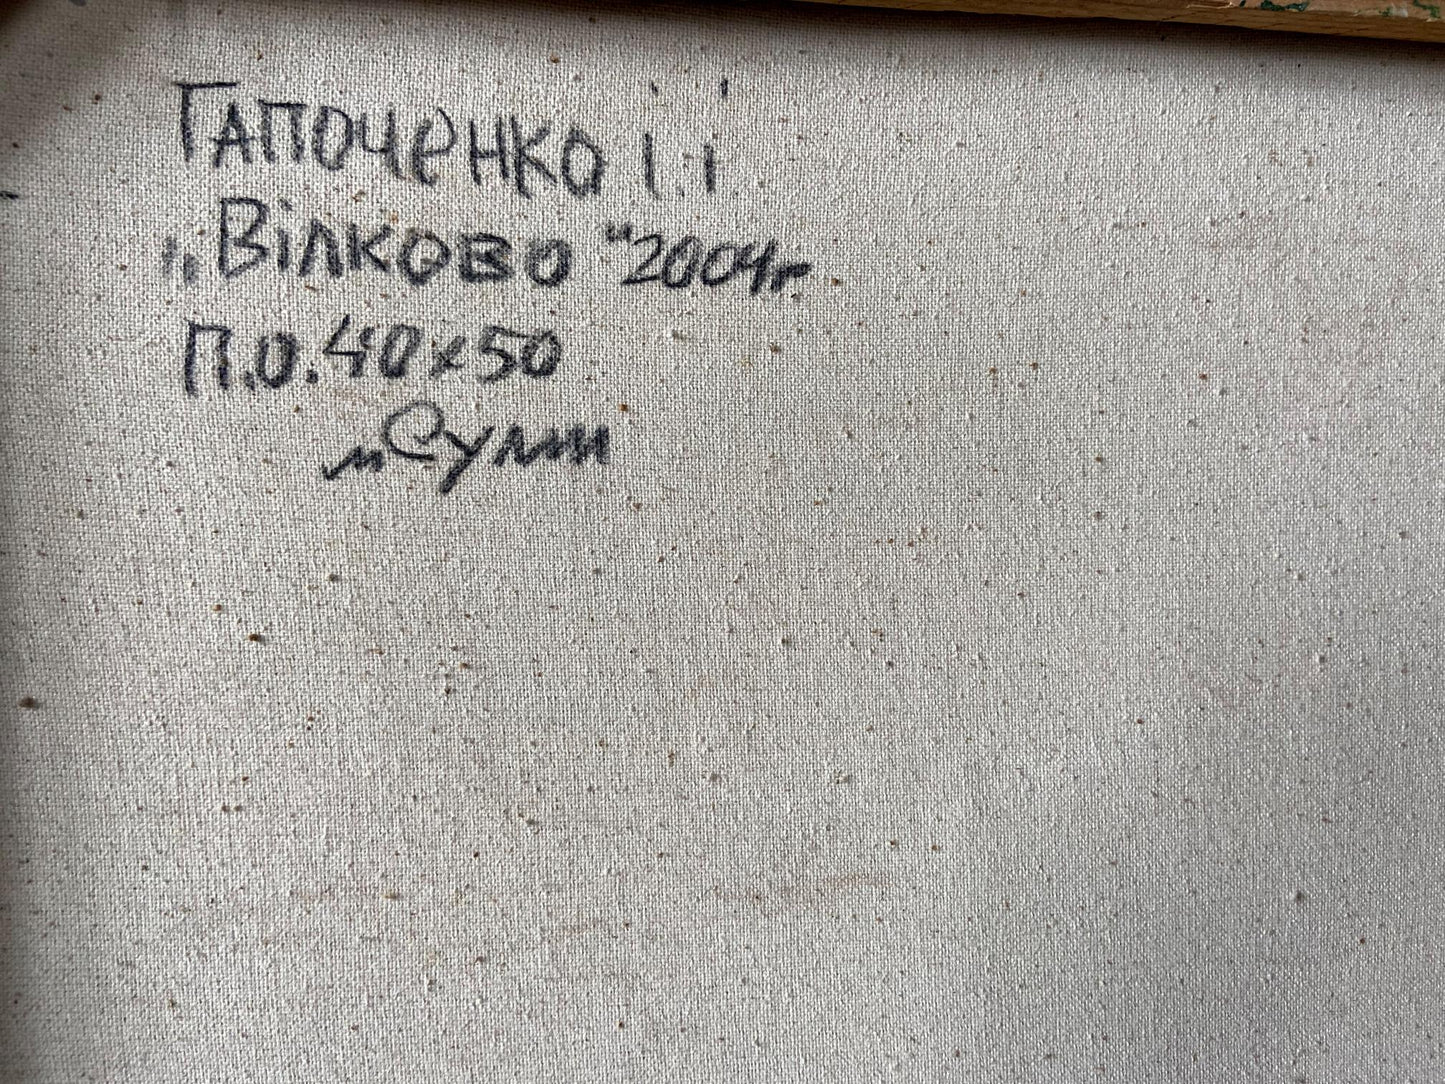 Гапоченко І.І
„Вілково" 2004г
П.О. 40х50
м Суми